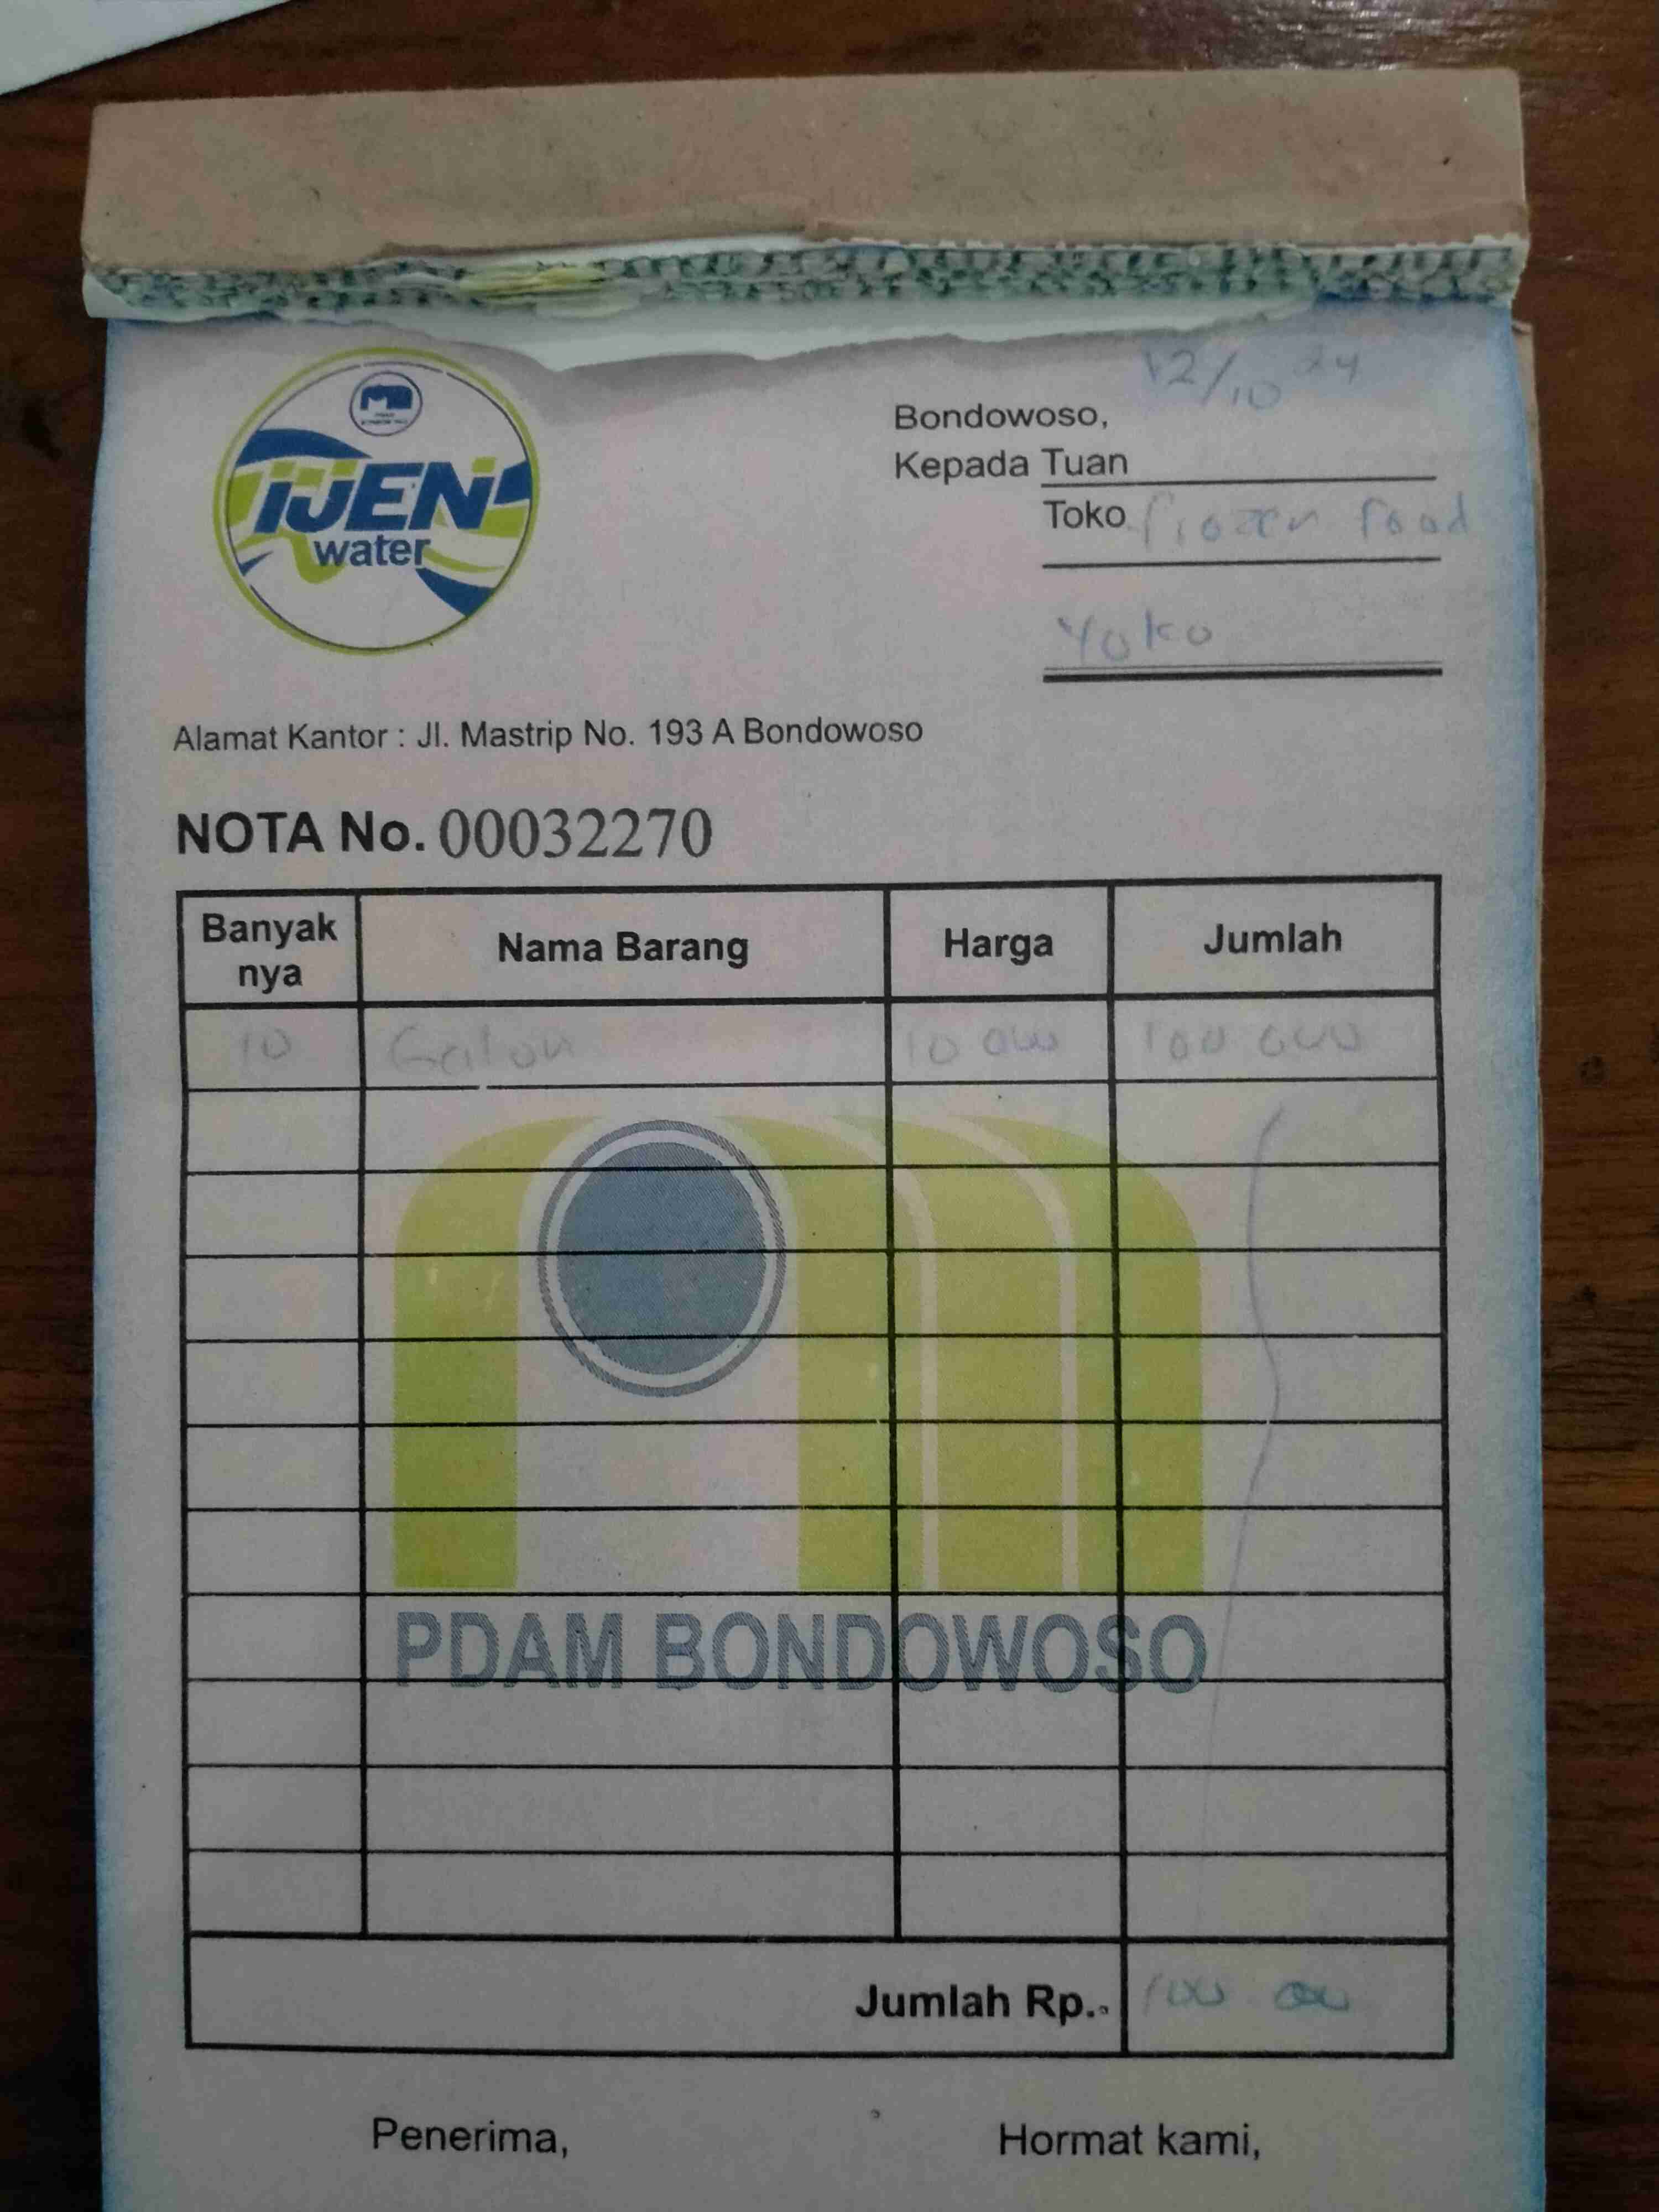 IJEN
water
12/10 24
Bondowoso,
Kepada Tuan
Toko frozen food
Yoko
Alamat Kantor : Jl. Mastrip No. 193 A Bondowoso
NOTA No. 00032270
Banyak nya Nama Barang Harga Jumlah
10 Galon 10 000 100 000
PDAM BONDOWOSO
Jumlah Rp. 100.000
Penerima, Hormat kami,